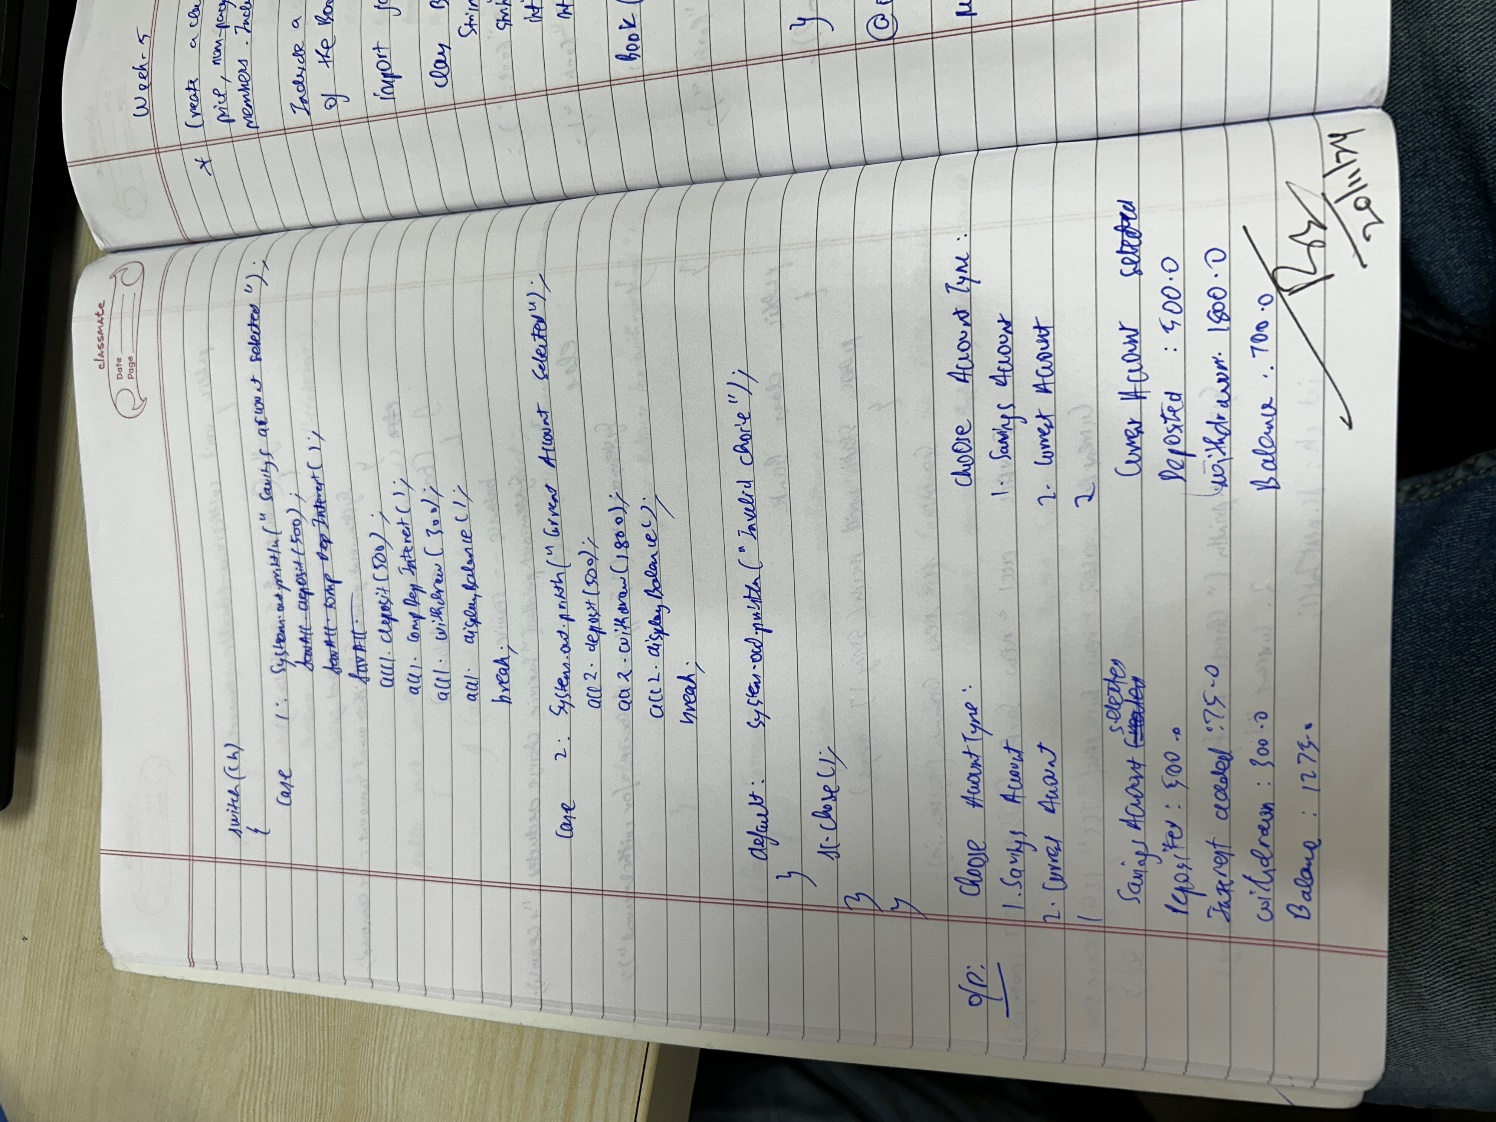 classmate
Date
Page
switch(ch)
{
case 1: System.out.println("Savings account selected");
acc1.deposit(500);
acc1.compDepInterest();
acc1.withdraw(300);
acc1.displayBalance();
break;
case 2: System.out.println("Current Account selected");
acc2.deposit(500);
acc2.withdraw(1800);
acc2.displayBalance();
break;
default: System.out.println("Invalid choice");
}
sc.close();
}
}
O/P:
Choose Account Type:
1. Savings Account
2. Current Account
1
Savings Account selected
Deposited : 500.0
Interest added : 75.0
withdrawn : 300.0
Balance : 1275.0
Choose Account Type:
1. Savings Account
2. Current Account
2
Current Account selected
Deposited : 500.0
withdrawn : 1800.0
Balance : 700.0
20/11/24
Week-5
* Create a cla
price, num-pag
members. Incl
Include a
of the Boo
import ja
Book (
}